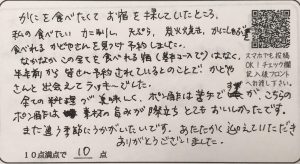 かにを食べたくてお宿を探していたところ、
私の食べたい カニ刺し、天ぷら、炭火焼き、かにしゃぶ
食べれる かどやさんを見つけ 予約しました。
なかなかこの全てを食べれる宿（基本コースで）はなく、
半年前から 皆さん予約されているとのことで かどや
さんと出会えてラッキーでした。
全ての料理が美味しく、ポン酢は苦手ですが、こちらの
ポン酢は 素材の旨みが際立ち とてもおいしかったです。
また違う季節にうかがいたいです。あたたかく迎えいただき
ありがとうございました。
10点満点で 10 点
スマホでも投稿
OK！チェック欄
記入後フロント
へお渡し下さい。